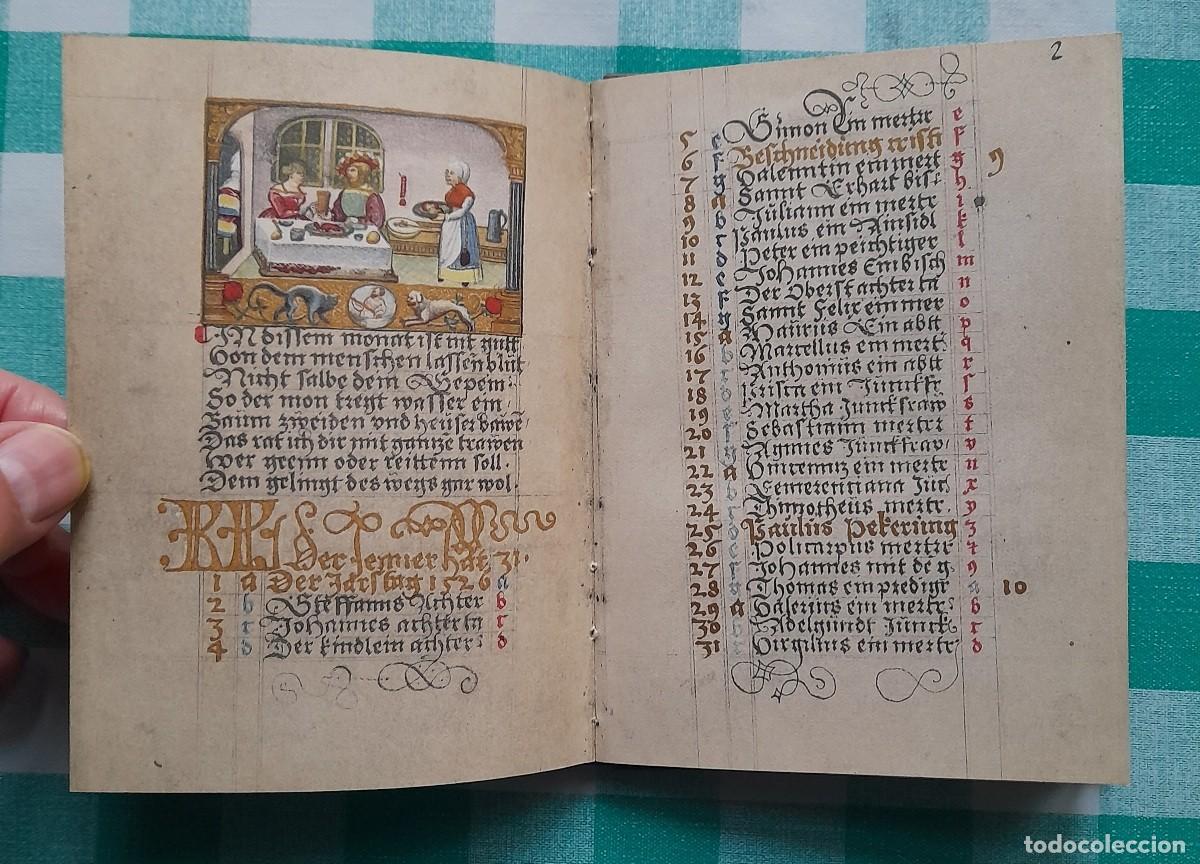 IN dissem monat ist nit gutt
Von dem menschen lassen blüt
Nicht salbe dem
So der mon tregt wasser ein
Baum zweiden vnd heuser bawen
Das rat ich dir mit gantze trawen
Wer geenn oder reittenn soll·
Dem gelingt des wegs gar wol·
KL
Der Jenner hat 31·
1 a Der Jarstag 1526 a
2 b Steffanns Achter b
3 c Johannes achter c
4 d Der kindlein achter· d
2
5 e Simon Ein mertrr e
6 f Beschneidung cristi f
7 g Valenntin ein mert g 9
8 a Sannt Erhart bis· h
9 b Juliann ein mertr i
10 c Paulus ein Ainsidl k
11 d Peter ein peichtiger l
12 e Johannes Ein bisch m
13 f Der Oberst achter n
14 g Sannt Felix ein mer o
15 a Maurus Ein abtt p
16 b Marcellus ein mert· q
17 c Anthonius ein abtt r
18 d Prisca ein Junckfr s
19 e Martha Junckfraw s
20 f Sebastiann mertrr t
21 g Agnnes Junckfraw· v
22 a Vincennz ein mertr u
23 b Emerentiana Jun x
24 c Thymotheus mertr· y
25 d Paulus Pekerung z
26 e Policarpus mertrr
27 f Johannes mit de g· 9
28 g Thomas ein predigr a 10
29 a Valerius ein mertr· b
30 b Adelgundt Junck· c
31 c Virgilius ein mertr· d
todocoleccion